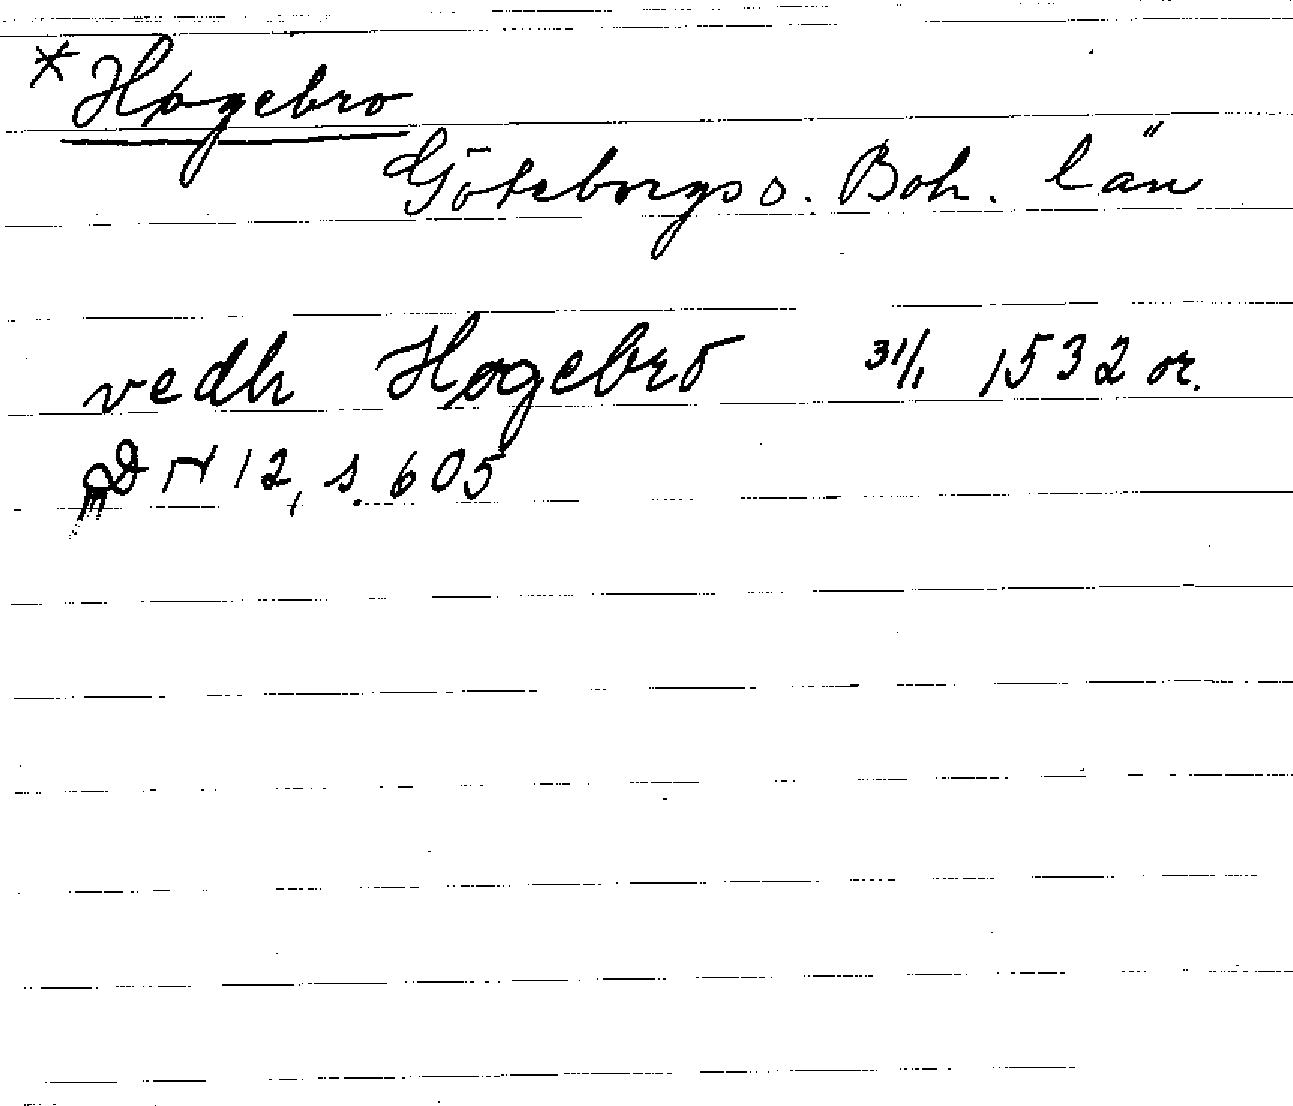 * Høgebro
Göteborgs o. Boh. län
vedh Hogebro 31/1 1532 or.
DN 12, s. 605